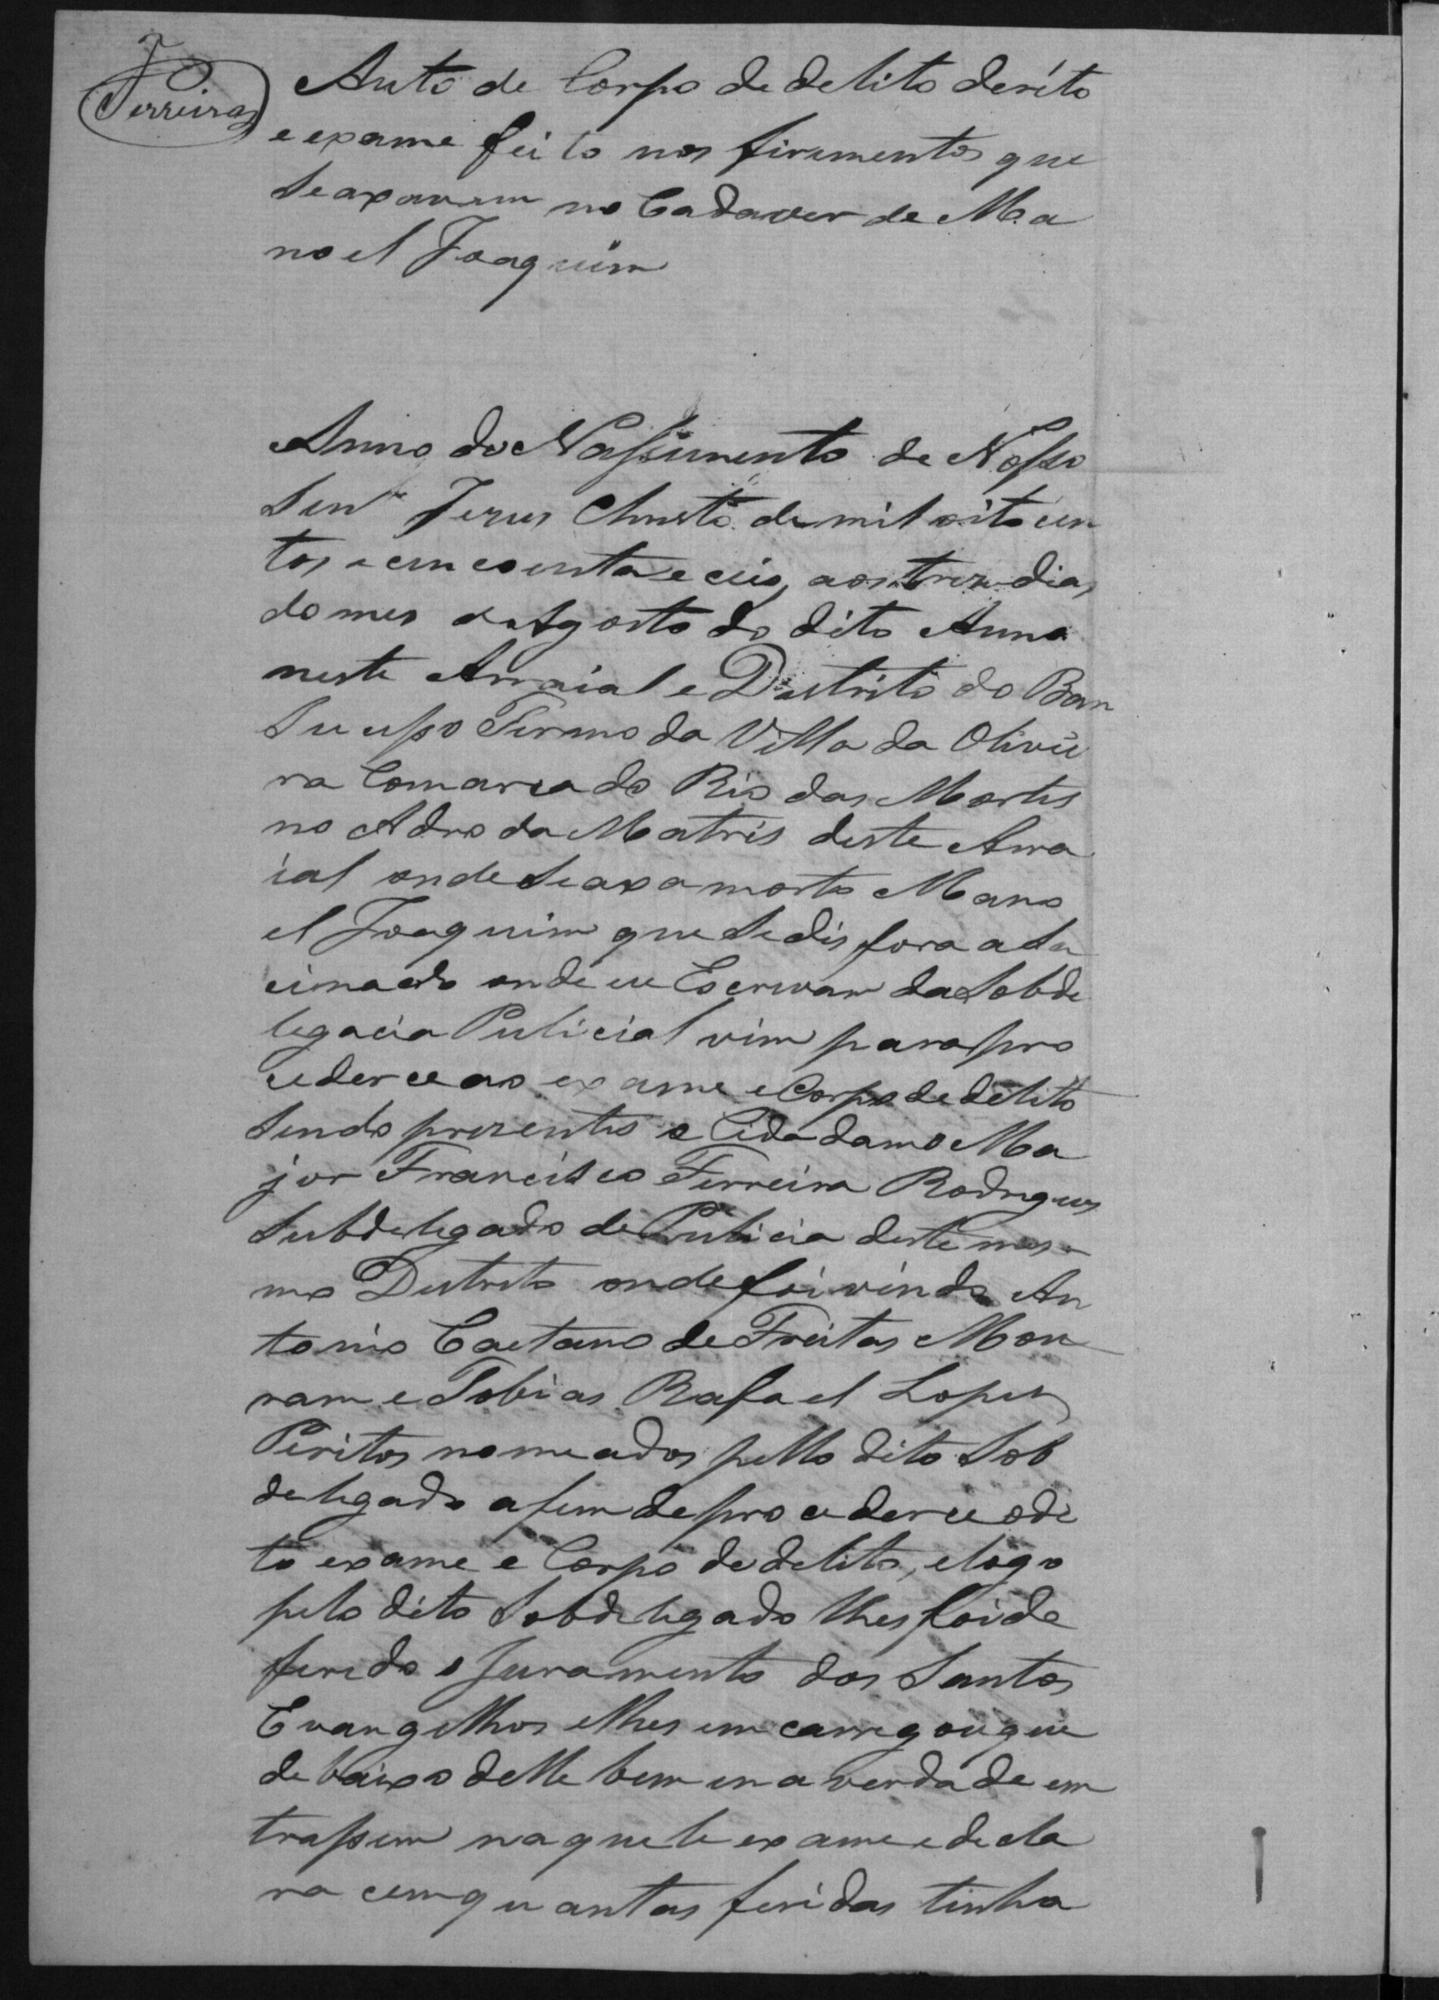 Ferreira
Auto de Corpo de delito deréto
e exame feito nos firimentos que
se axavam no Cadaver de Ma
noel Joaquim
Anno do Nassimento de Nosso
Senr Jezus Christo de mil oito cen
tos e cincoenta e ceis, aos treze dias
do mes de Agosto do dito Anno
neste Arraial e Distrito do Bom
Sucesso Termo da Villa da Olivei
ra Comarca do Rio das Mortes
no Adro da Matris deste Arra
ial onde se axa morto Mano
el Joaquim que se dis fora aSa
cinado onde eu Escrivam da Sobde
legacia Pulicial vim para pro
cederce ao exame e Corpo de delito
sendo prezentes o Cidadam o Ma
jor Francisco Ferreira Rodrigues
Subdelegado de Pulicia deste mes
mo Distrito onde foi vindo An
tonio Caetano de Freitas Mou
ram e Tobias Rafael Lopes
Peritos nomeados pello dito Sob
delegado afim de proceder ce o di
to exame e Corpo de delito, e logo
pelo dito Sobdelegado lhes foi de
ferido o Juramento dos Santos
Evangelhos e lhes emcarregou que
debaixo delle bem e na verdade em
trassem naquele exame e decla
racem quantas feridas tinha